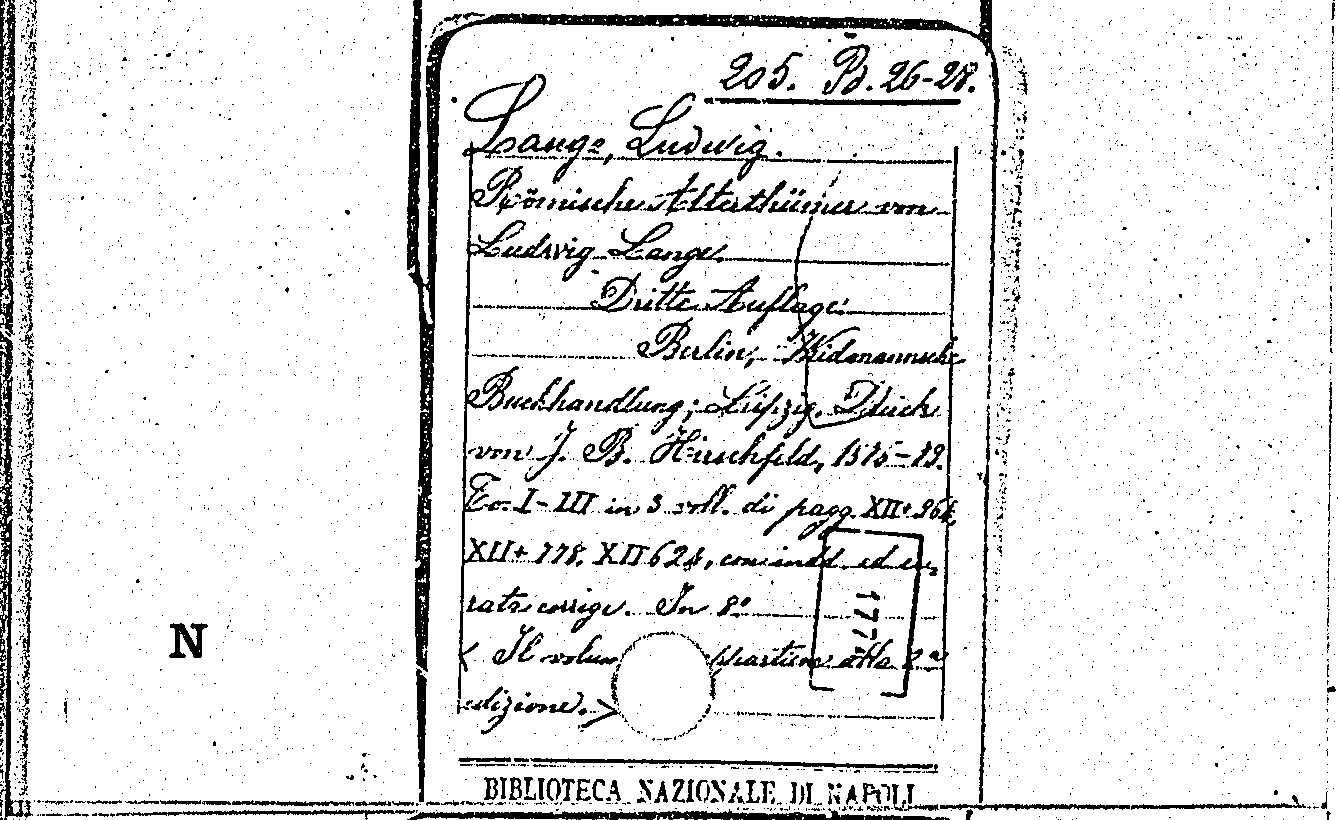 205. B. 26-28.
Lange, Ludwig.
Römische Alterthümer von
Ludwig Lange.
Dritte Auflage.
Berlin, Weidmannsche
Buchhandlung; Leipzig. Druck
von J. B. Hirschfeld, 1875-79.
To. I-III in 3 voll. di pagg. XII+
XII+778, XII 624, con indd. ed er-
rata corrige. In 8°
177
< Il volum appartiene alla 2ª
edizione. >
N
BIBLIOTECA NAZIONALE DI NAPOLI